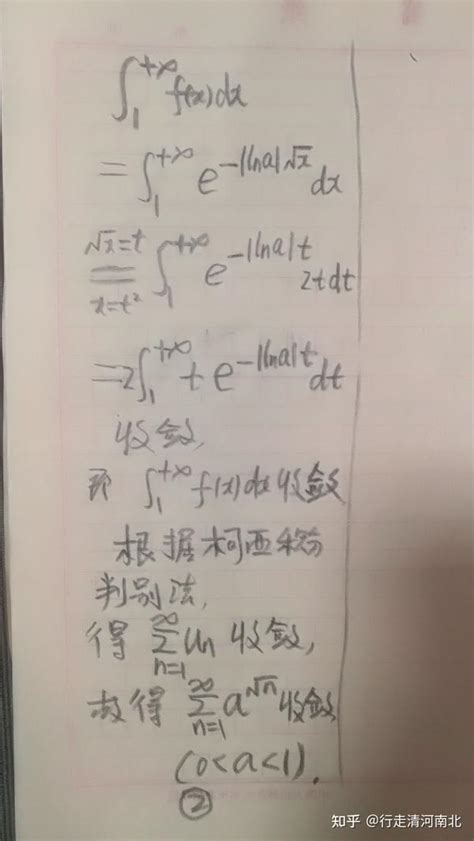 ∫₁^{+∞} f(x)dx
= ∫₁^{+∞} e^{-|lna|√x} dx
√x=t
x=t² ∫₁^{+∞} e^{-|lna|t} 2tdt
=2∫₁^{+∞} t e^{-|lna|t} dt
收敛,
即 ∫₁^{+∞} f(x)dx 收敛
根据柯西积分
判别法,
得 ∑_{n=1}^{∞} Un 收敛,
故得 ∑_{n=1}^{∞} a^{√n} 收敛
(0<a<1).
②
知乎 @行走清河南北